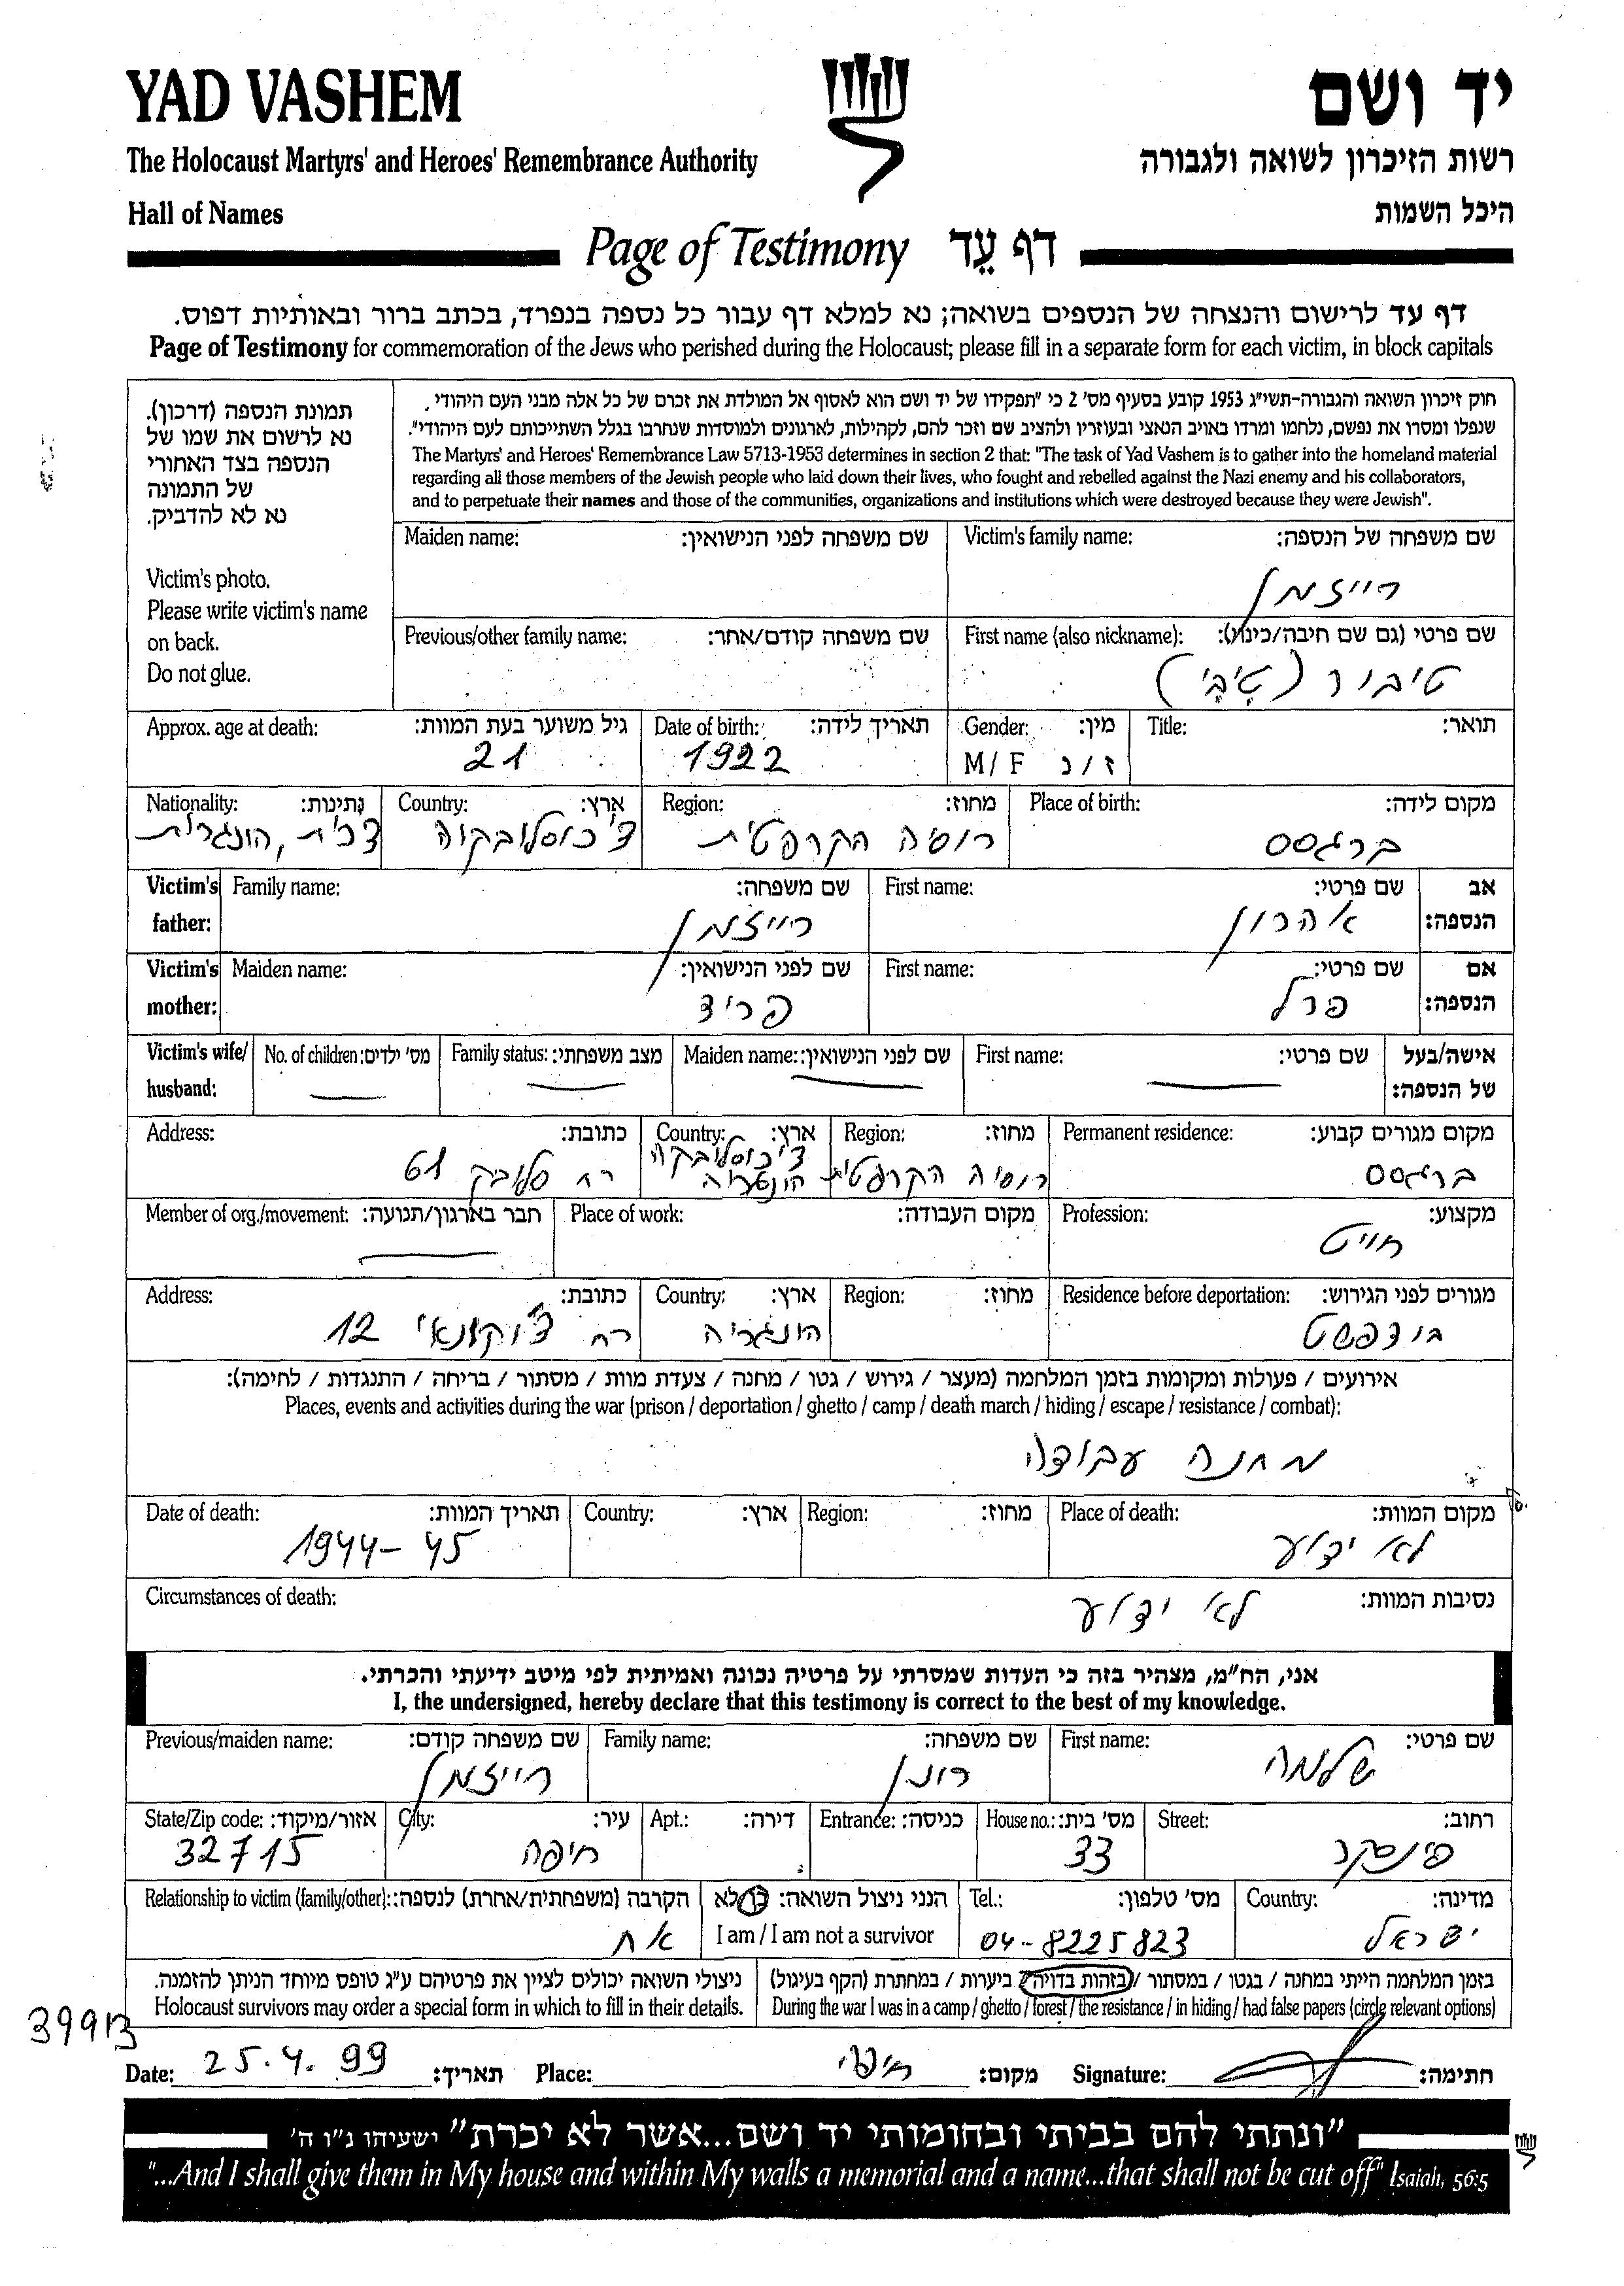 YAD VASHEM
יד ושם
The Holocaust Martyrs' and Heroes' Remembrance Authority
רשות הזיכרון לשואה ולגבורה
Hall of Names
היכל השמות
Page of Testimony דף עֵד
דף עד לרישום והנצחה של הנספים בשואה; נא למלא דף עבור כל נספה בנפרד, בכתב ברור ובאותיות דפוס.
Page of Testimony for commemoration of the Jews who perished during the Holocaust; please fill in a separate form for each victim, in block capitals
תמונת הנספה (דרכון).
נא לרשום את שמו של
הנספה בצד האחורי
של התמונה
נא לא להדביק.
Victim's photo.
Please write victim's name
on back.
Do not glue.
חוק זיכרון השואה והגבורה-תשי"ג 1953 קובע בסעיף מס' 2 כי "תפקידו של יד ושם הוא לאסוף אל המולדת את זכרם של כל אלה מבני העם היהודי,
שנפלו ומסרו את נפשם, נלחמו ומרדו באויב הנאצי ובעוזריו ולהציב שם וזכר להם, לקהילות, לארגונים ולמוסדות שנחרבו בגלל השתייכותם לעם היהודי".
The Martyrs' and Heroes' Remembrance Law 5713-1953 determines in section 2 that: "The task of Yad Vashem is to gather into the homeland material
regarding all those members of the Jewish people who laid down their lives, who fought and rebelled against the Nazi enemy and his collaborators,
and to perpetuate their names and those of the communities, organizations and institutions which were destroyed because they were Jewish".
Maiden name: שם משפחה לפני הנישואין: Victim's family name: שם משפחה של הנספה:
רייזמן
Previous/other family name: שם משפחה קודם/אחר: First name (also nickname): שם פרטי (גם שם חיבה/כינוי):
טיבור (טיבי)
Approx. age at death: גיל משוער בעת המוות: Date of birth: תאריך לידה: Gender: מין: Title: תואר:
21 1922 M/F ז/נ
Nationality: נתינות: Country: ארץ: Region: מחוז: Place of birth: מקום לידה:
צ'כית, הונגרית צ'כוסלובקיה רוסיה הקרפטית ברגסס
Victim's father: Family name: שם משפחה: First name: שם פרטי: אב הנספה:
רייזמן אהרון
Victim's mother: Maiden name: שם לפני הנישואין: First name: שם פרטי: אם הנספה:
פריד פרל
Victim's wife/ husband: No. of children: מס' ילדים: Family status: מצב משפחתי: Maiden name: שם לפני הנישואין: First name: שם פרטי: אישה/בעל של הנספה:
Address: כתובת: Country: ארץ: Region: מחוז: Permanent residence: מקום מגורים קבוע:
רח סלובק 61 צ'כוסלובקיה הונגריה רוסיה הקרפטית ברגסס
Member of org./movement: חבר בארגון/תנועה: Place of work: מקום העבודה: Profession: מקצוע:
חייט
Address: כתובת: Country: ארץ: Region: מחוז: Residence before deportation: מגורים לפני הגירוש:
רח צ'וקונאי 12 הונגריה בודפשט
אירועים / פעולות ומקומות בזמן המלחמה (מעצר / גירוש / גטו / מחנה / צעדת מוות / מסתור / בריחה / התנגדות / לחימה):
Places, events and activities during the war (prison / deportation / ghetto / camp / death march / hiding / escape / resistance / combat):
מחנה עבודה
Date of death: תאריך המוות: Country: ארץ: Region: מחוז: Place of death: מקום המוות:
1944-45 לא ידוע
Circumstances of death: נסיבות המוות:
לא ידוע
אני, הח"מ, מצהיר בזה כי העדות שמסרתי על פרטיה נכונה ואמיתית לפי מיטב ידיעתי והכרתי.
I, the undersigned, hereby declare that this testimony is correct to the best of my knowledge.
Previous/maiden name: שם משפחה קודם: Family name: שם משפחה: First name: שם פרטי:
רייזמן רונן שלמה
State/Zip code: אזור/מיקוד: City: עיר: Apt.: דירה: Entrance: כניסה: House no.: מס' בית: Street: רחוב:
32715 חיפה 33 פינסקר
Relationship to victim (family/other): הקרבה (משפחתית/אחרת) לנספה: הנני ניצול השואה: כן/לא Tel.: מס' טלפון: Country: מדינה:
אח I am / I am not a survivor 04-8225823 ישראל
ניצולי השואה יכולים לציין את פרטיהם ע"ג טופס מיוחד הניתן להזמנה.
Holocaust survivors may order a special form in which to fill in their details.
בזמן המלחמה הייתי במחנה / בגטו / במסתור / בזהות בדויה / ביערות / במחתרת (הקף בעיגול)
During the war I was in a camp / ghetto / forest / the resistance / in hiding / had false papers (circle relevant options)
399B
Date: 25.4.99 תאריך: Place: חיפה מקום: Signature: חתימה:
"ונתתי להם בביתי ובחומותי יד ושם...אשר לא יכרת" ישעיהו נ"ו ה'
"...And I shall give them in My house and within My walls a memorial and a name...that shall not be cut off" Isaiah, 56:5